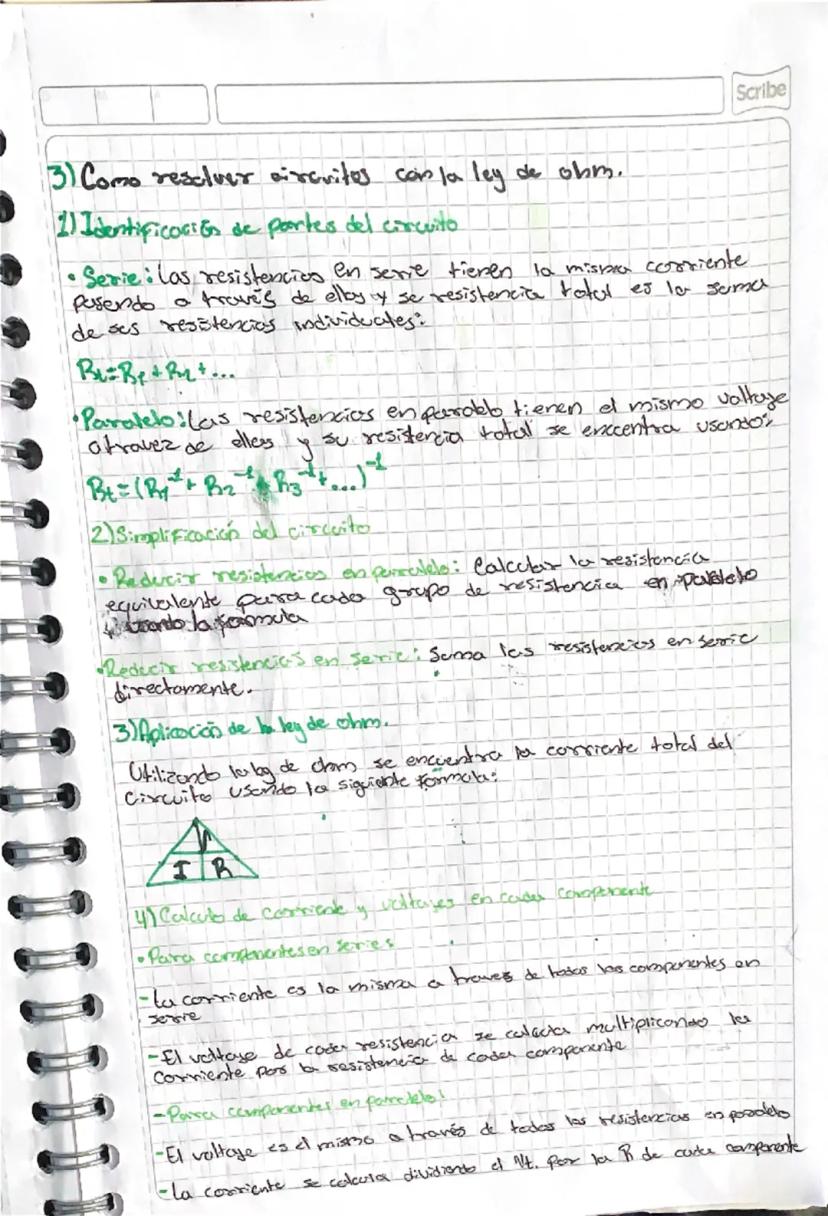 Scribe
3) Como resolver circuitos con la ley de ohm.
1) Identificación de partes del circuito
• Serie: las resistencias en serie tienen la misma corriente
pasando a través de ellas y se resistencia total es la suma
de ses resistencias individuales:
Rt=R1+R2+...
• Paralelo: Las resistencias en paralelo tienen el mismo voltaje
atravez de ellas y su resistencia total se enccentra usando:
Rt=(R1⁻¹+R2⁻¹+R3⁻¹+...)⁻¹
2) Simplificación del circuito
• Reducir resistencias en paralelo: Calcular la resistencia
equivalente para cada grupo de resistencia en paralelo
usando la formula
• Reducir resistencias en serie: Suma las resistencias en serie
directamente.
3) Aplicación de la ley de ohm.
Utilizando la ley de ohm se encuentra la corriente total del
circuito usando la siguiente formula:
V
I R
4) Calculo de corriente y voltajes en cada componente
• Para componentes en series
- La corriente es la misma a traves de todos los componentes en
serie
- El voltaje de cada resistencia se calcula multiplicando la
corriente por la resistencia de cada componente
- Para componentes en paralelo:
- El voltaje es el mismo a través de todas las resistencias en paralelo
- La corriente se calcula dividiendo el Vt. por la R de cada componente